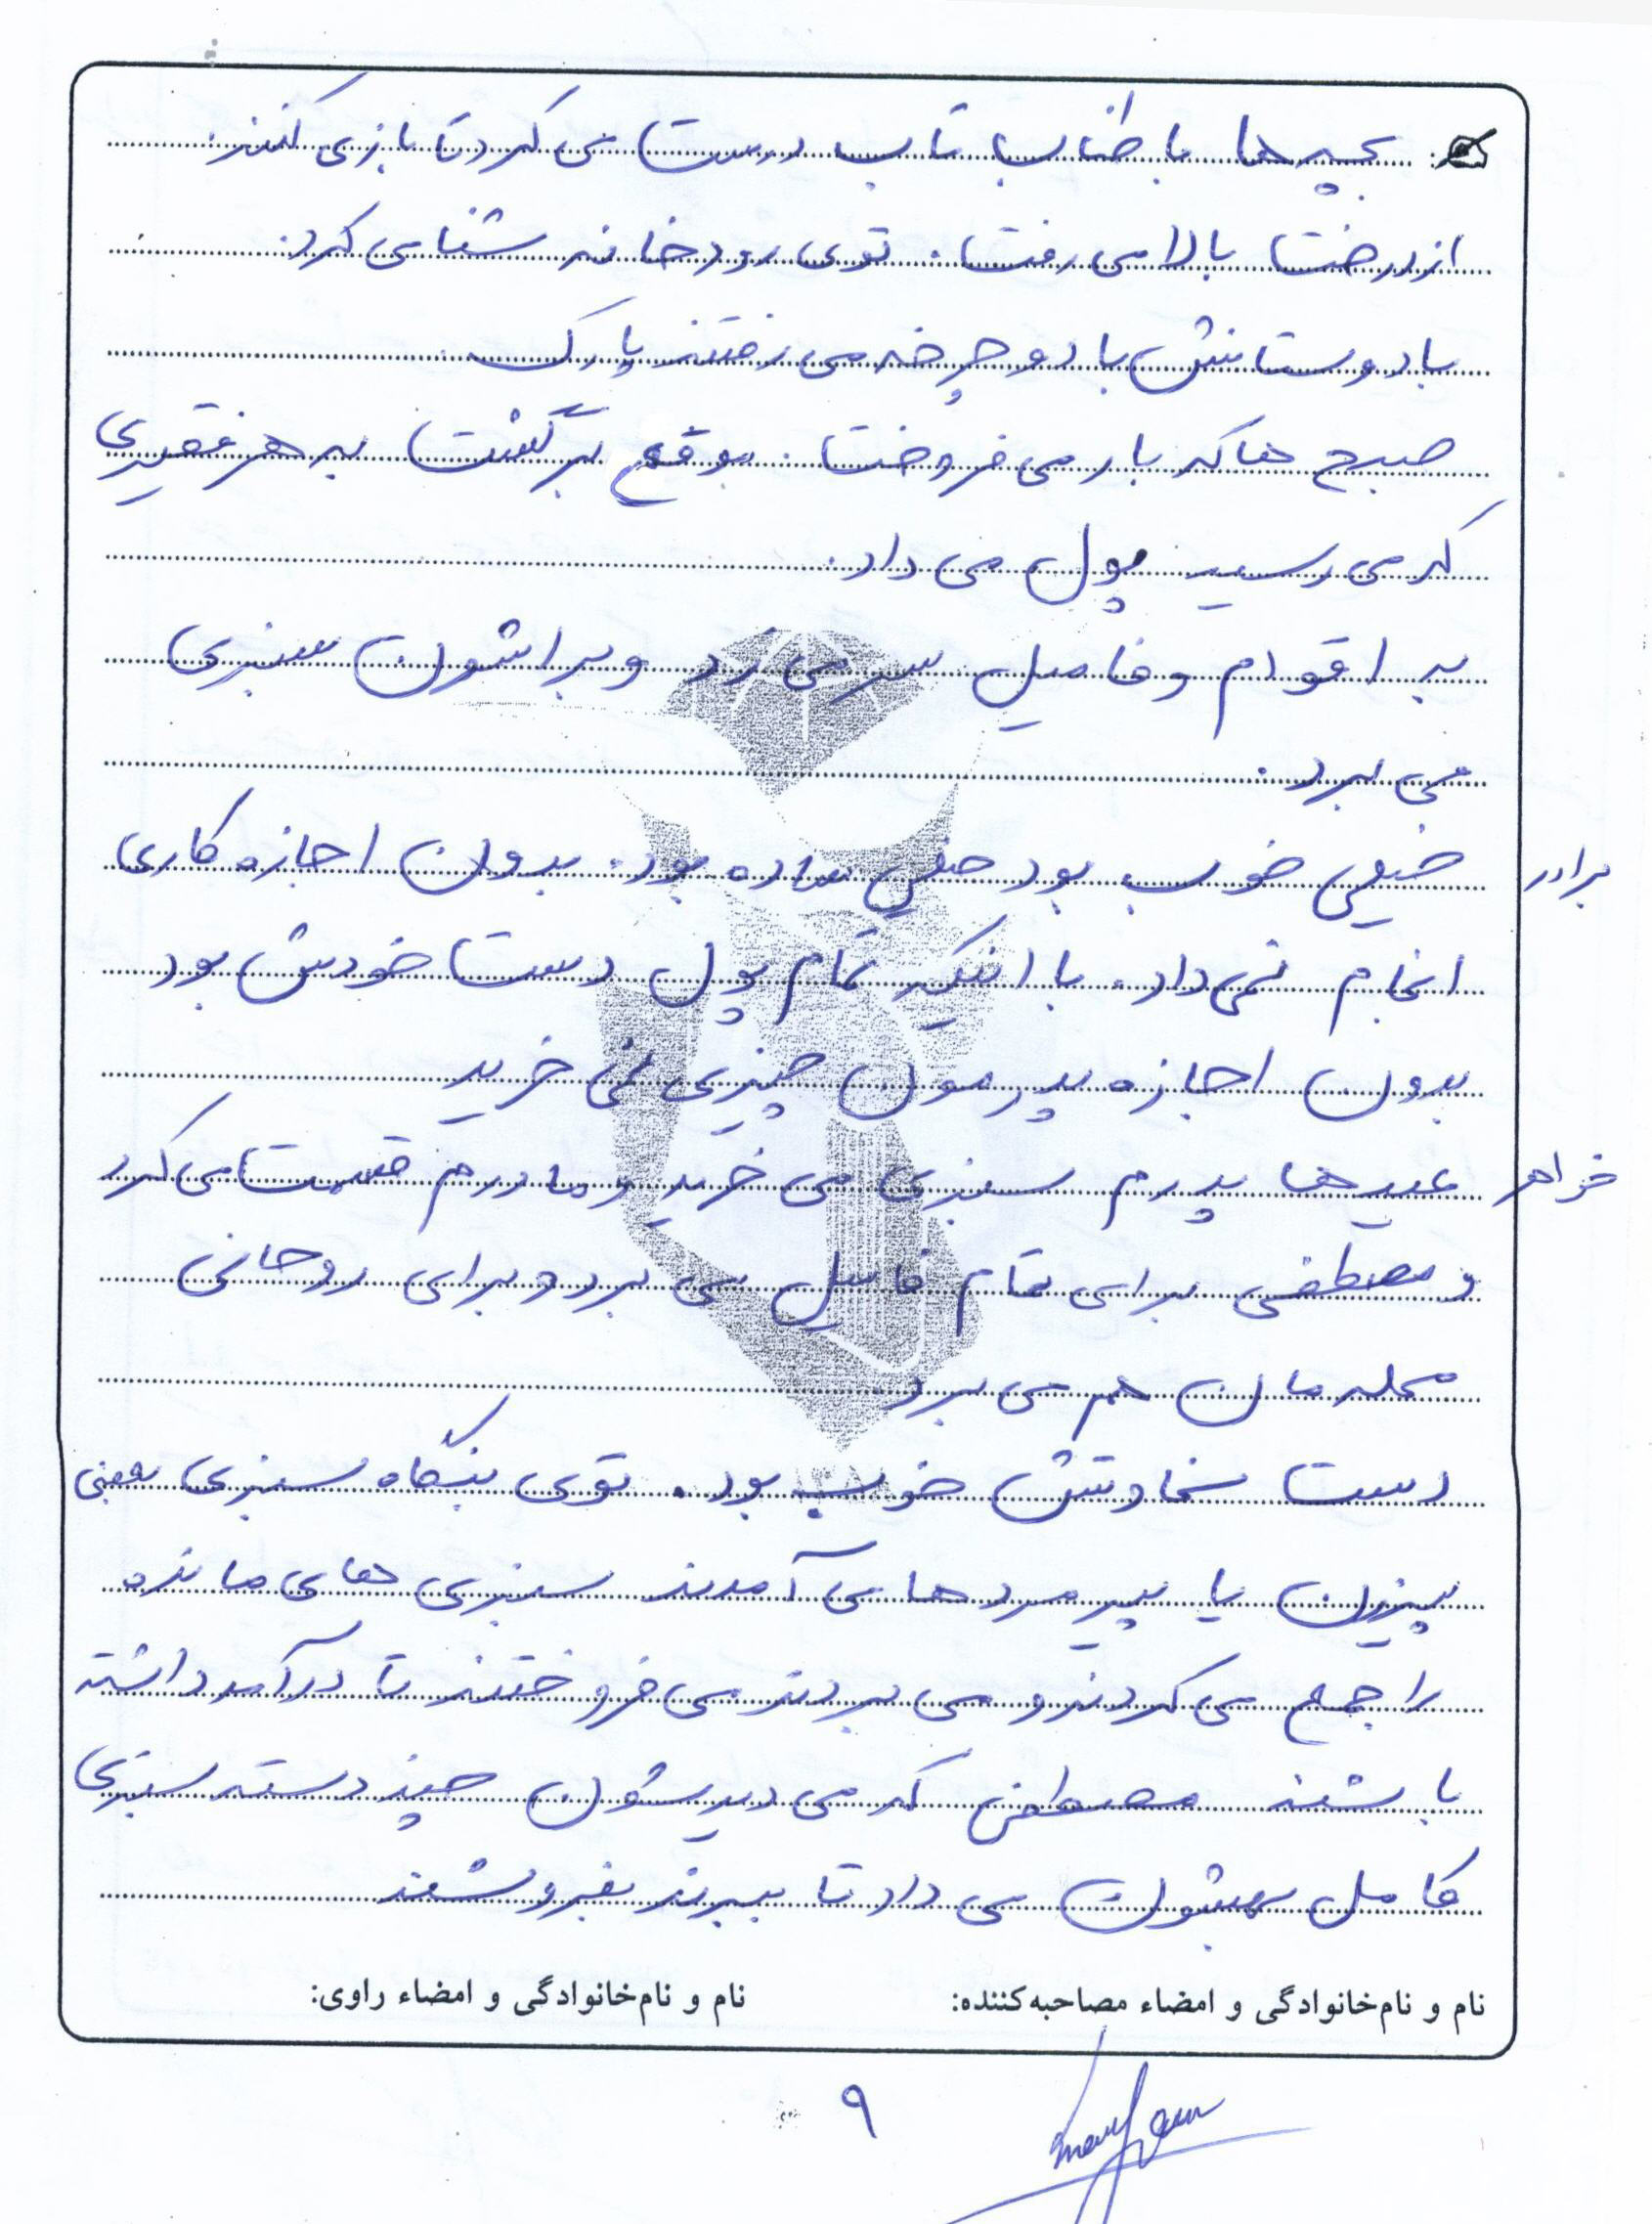 بچه ها با طناب تاب درست می کرد تا بازی کنند.
از درخت بالا می رفت. توی رودخانه شنا می کرد.
با دوستانش با دوچرخه می رفتند پارک.
صبح ها که بار می فروخت. موقع برگشت به هر فقیری
که می رسید پول می داد.
به اقوام و فامیل سر می زد و براشون سبزی
می برد.
برادر خیلی خوب بود خیلی ساده بود. بدون اجازه کاری
انجام نمی داد. با اینکه تمام پول دست خودش بود
بدون اجازه پدرمون چیزی نمی خرید
خواهر عیدها پدرم سبزی می خرید و مادرم قسمت می کرد
و مصطفی برای تمام فامیل می برد و برای روحانی
محله مان هم می برد
دست سخاوتش خوب بود. توی بنگاه سبزی بعضی
پیرزن یا پیرمردها می آمدند سبزی های مانده
را جمع می کردند و می بردند می فروختند تا درآمد داشته
باشند مصطفی که می دیدشون چند دسته سبزی
کامل بهشون می داد تا ببرند بفروشند
نام و نام‌خانوادگی و امضاء مصاحبه‌کننده: نام و نام‌خانوادگی و امضاء راوی:
۹